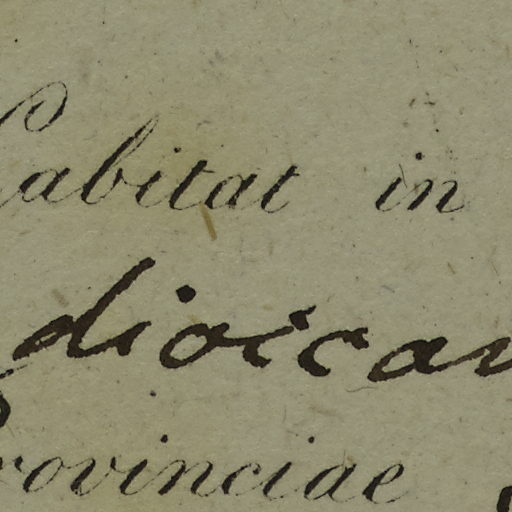 Habitat in
dioican
Provinciae